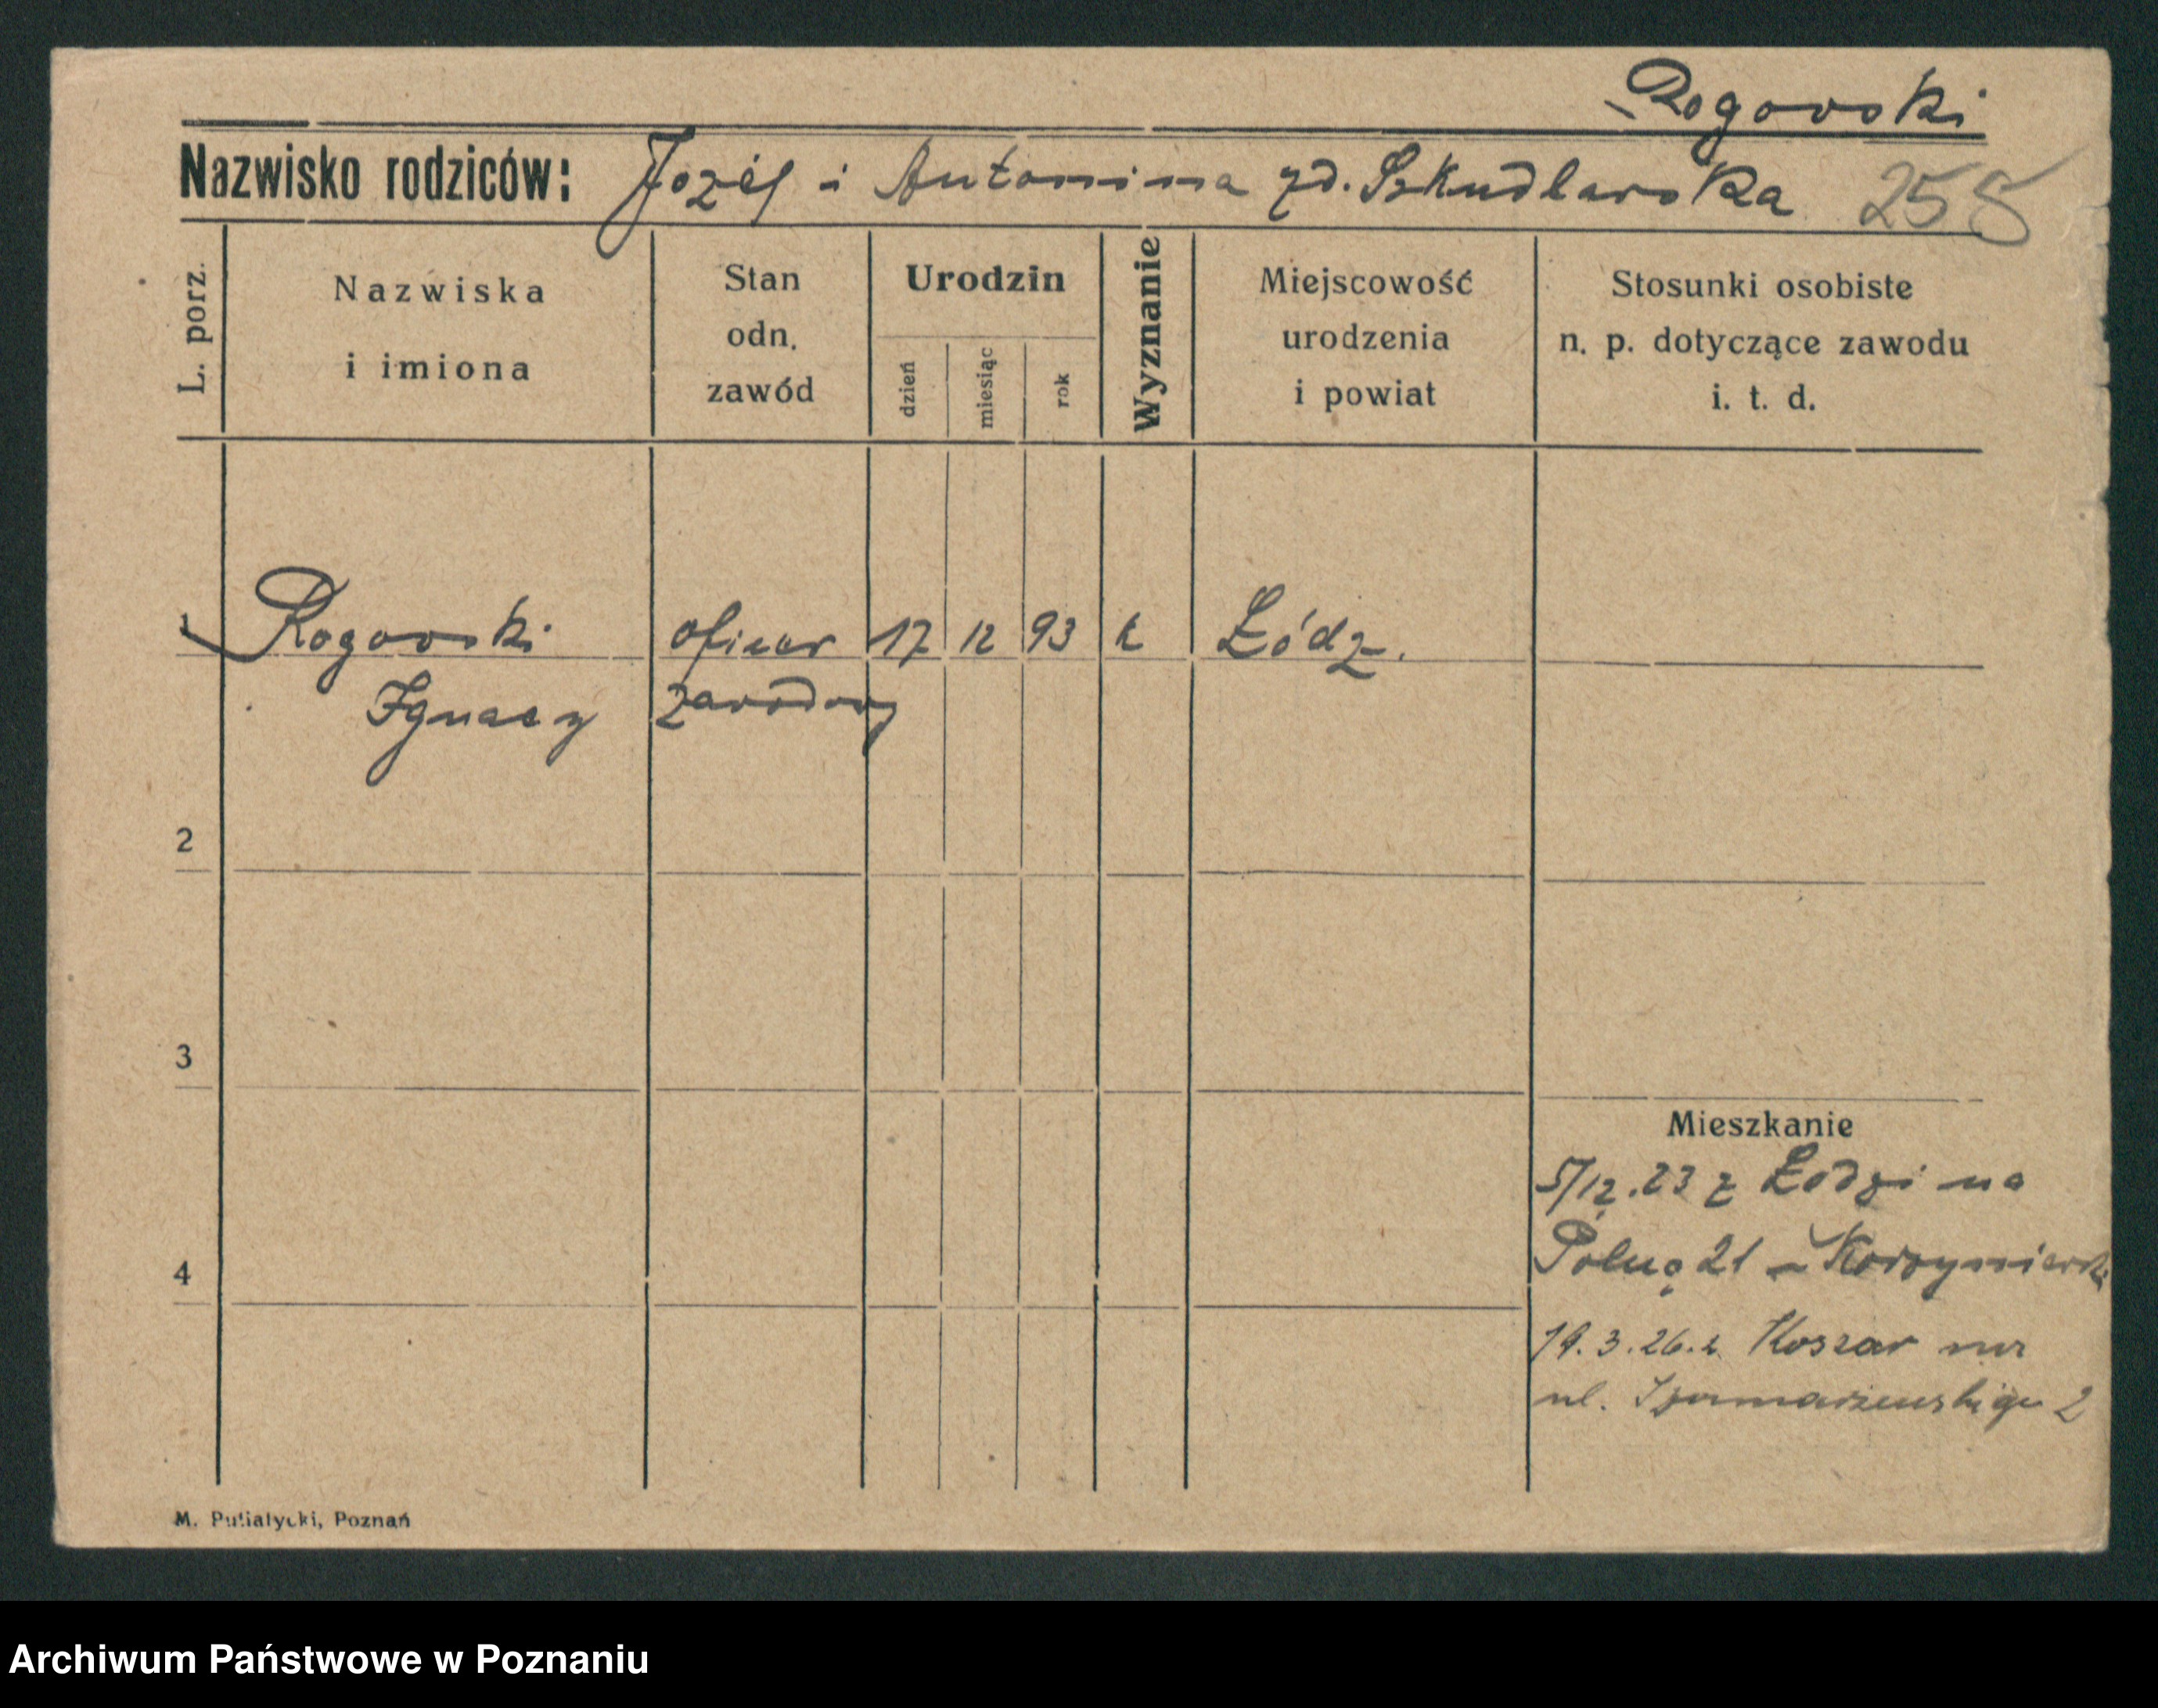 Rogowski
Nazwisko rodziców: Józef i Antonina zd. Szkudlarska 255
L. porz.
Nazwiska
i imiona
Stan
odn.
zawód
Urodzin
dzień
miesiąc
rok
Wyznanie
Miejscowość
urodzenia
i powiat
Stosunki osobiste
n. p. dotyczące zawodu
i. t. d.
1 Rogowski oficer 17 12 93 k Łódź.
Ignacy zawodowy
2
3
Mieszkanie
5/12.23 z Łodzi na
21 -
4
19.3.26. z Koszar na
ul. 2
M. Putiatycki, Poznań
Archiwum Państwowe w Poznaniu